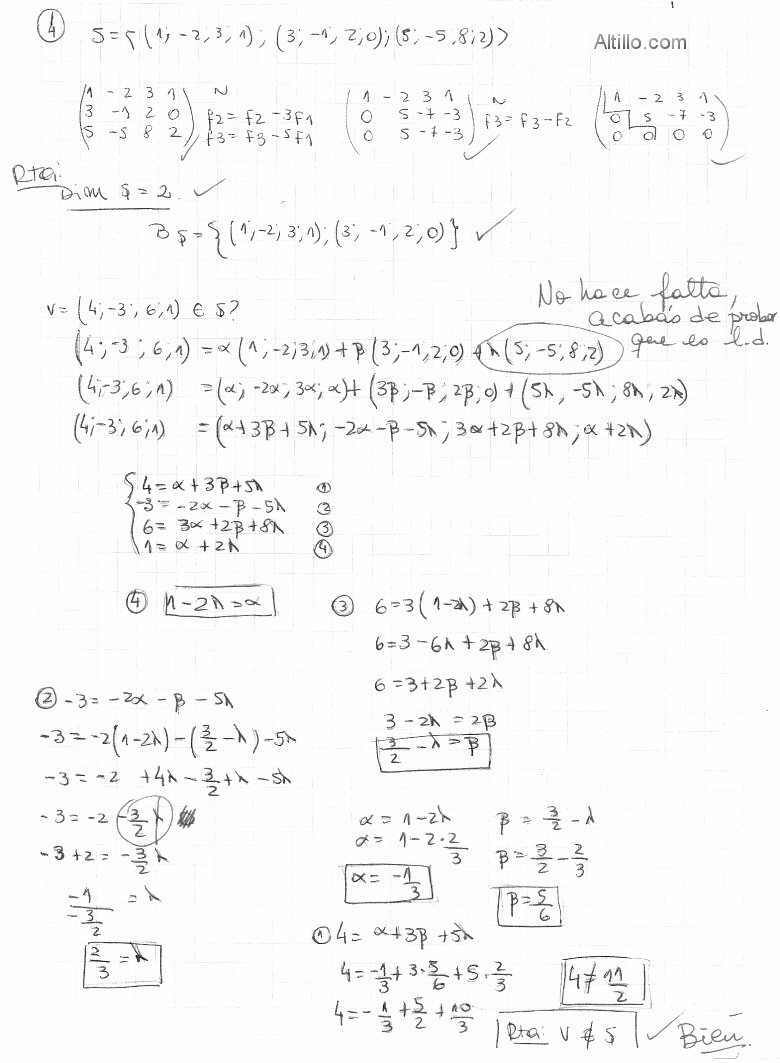 ④ S = < (1; -2, 3, 1); (3; -1, 2; 0); (5; -5, 8; 2) >
Altillo.com
1 -2 3 1
3 -1 2 0
5 -5 8 2
~
f2 = f2 - 3f1
f3 = f3 - 5f1
1 -2 3 1
0 5 -7 -3
0 5 -7 -3
~
f3 = f3 - f2
1 -2 3 1
0 5 -7 -3
0 0 0 0
Rta:
Dim S = 2 ✓
B S = {(1; -2; 3; 1); (3; -1, 2; 0)} ✓
V = (4; -3; 6, 1) ∈ S?
No hace falta,
acabás de probar
que es l.d.
(4; -3; 6, 1) = α(1; -2; 3; 1) + β(3; -1, 2; 0) + λ(5; -5; 8; 2)
(4; -3; 6; 1) = (α; -2α; 3α; α) + (3β; -β; 2β; 0) + (5λ, -5λ; 8λ; 2λ)
(4; -3; 6; 1) = (α + 3β + 5λ; -2α - β - 5λ; 3α + 2β + 8λ; α + 2λ)
4 = α + 3β + 5λ ①
-3 = -2α - β - 5λ ②
6 = 3α + 2β + 8λ ③
1 = α + 2λ ④
④ 1 - 2λ = α
③ 6 = 3(1 - 2λ) + 2β + 8λ
6 = 3 - 6λ + 2β + 8λ
6 = 3 + 2β + 2λ
3 - 2λ = 2β
3/2 - λ = β
② -3 = -2α - β - 5λ
-3 = -2(1 - 2λ) - (3/2 - λ) - 5λ
-3 = -2 + 4λ - 3/2 + λ - 5λ
-3 = -2 -3/2 λ
-3 + 2 = -3/2 λ
-1/(-3/2) = λ
2/3 = λ
α = 1 - 2λ
α = 1 - 2 · 2/3
α = -1/3
β = 3/2 - λ
β = 3/2 - 2/3
β = 5/6
① 4 = α + 3β + 5λ
4 = -1/3 + 3 · 5/6 + 5 · 2/3
4 = -1/3 + 5/2 + 10/3
4 ≠ 11/2
Rta: V ∉ S ✓ Bien.